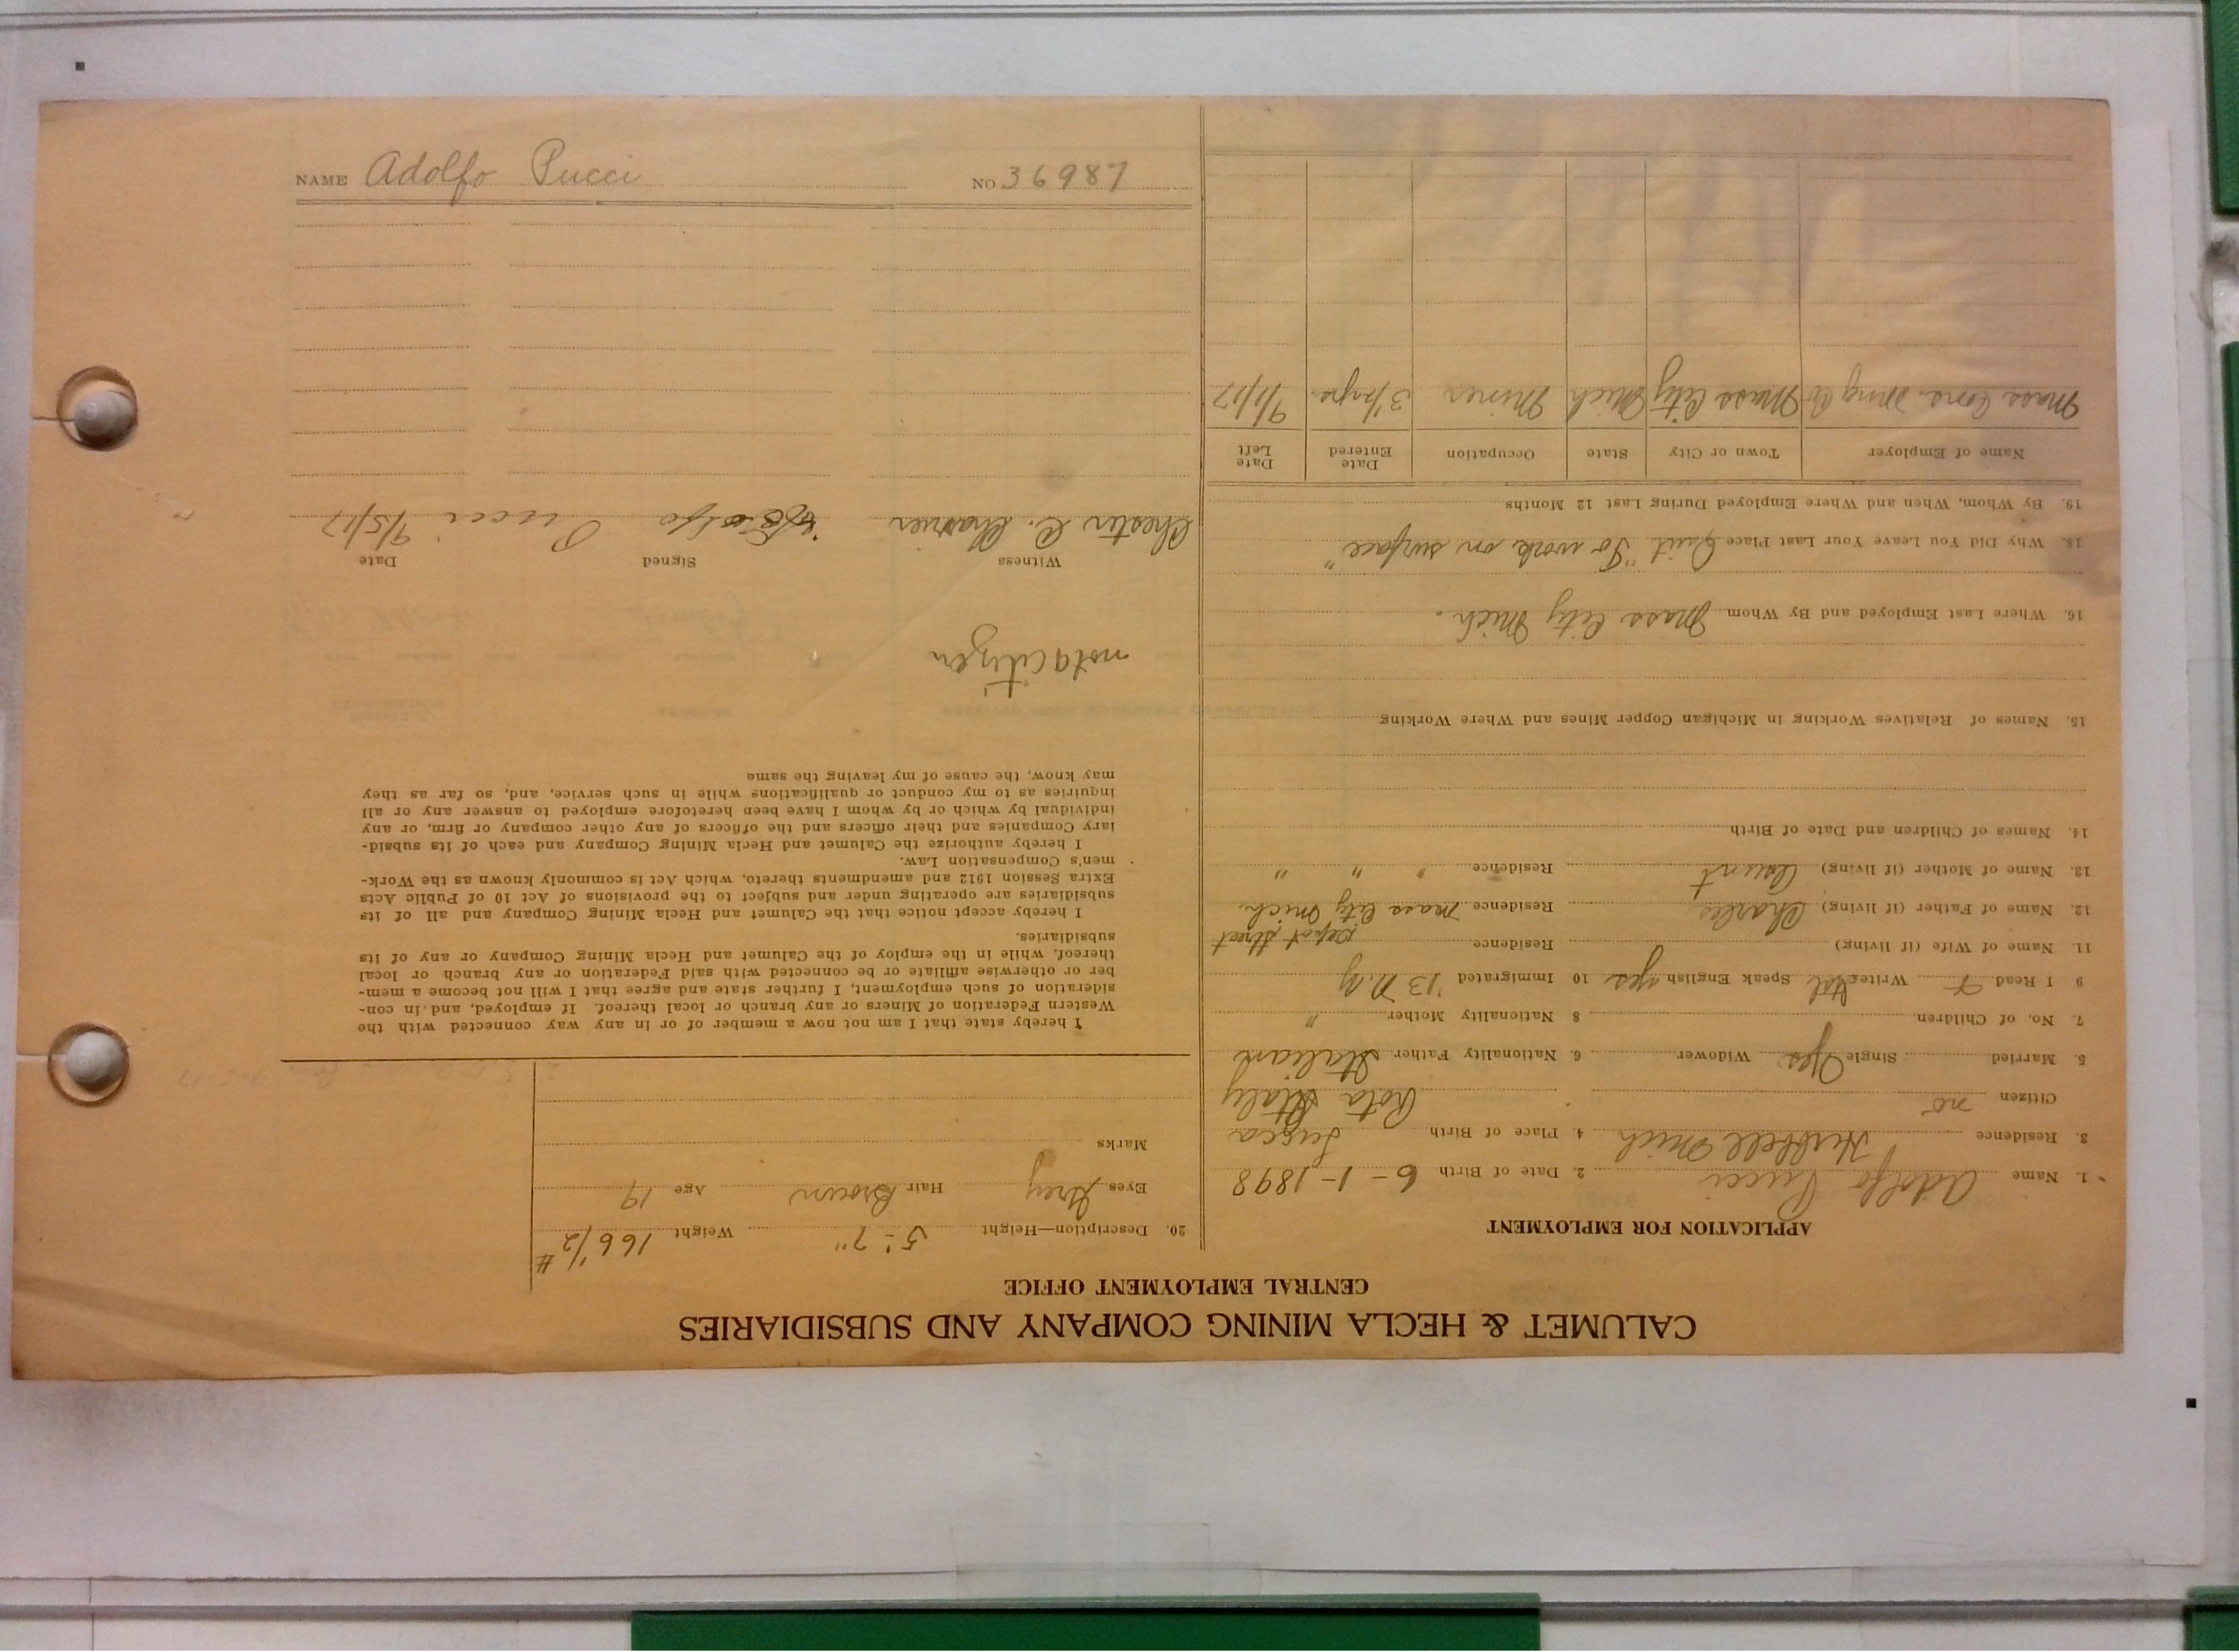 CALUMET & HECLA MINING COMPANY AND SUBSIDIARIES
CENTRAL EMPLOYMENT OFFICE
APPLICATION FOR EMPLOYMENT
1. Name Adolfo Pucci 2. Date of Birth 6-1-1898
3. Residence Hubbell Mich 4. Place of Birth Lucca
Citizen no Italy
5. Married Single Yes Widower 6. Nationality Father Italian
7. No. of Children 8 Nationality Mother "
9 I Read Write Ital Speak English yes 10 Immigrated '13 N.Y
11. Name of Wife (if living) Residence Depot Street
12. Name of Father (if living) Charles Residence Mass City Mich.
13. Name of Mother (if living) Residence " " "
14. Names of Children and Date of Birth
15. Names of Relatives Working in Michigan Copper Mines and Where Working
16. Where Last Employed and By Whom Mass City Mich.
18. Why Did You Leave Your Last Place Quit "To work on surface"
19. By Whom, When and Where Employed During Last 12 Months
Name of Employer Town or City State Occupation Date Entered Date Left
Mass Cons. Mng Co Mass City Mich Miner 3½ yrs. 9/1/17
20. Description—Height 5'-7" Weight 166 1/2 #
Eyes Grey Hair Brown Age 19
Marks
I hereby state that I am not now a member of or in any way connected with the
Western Federation of Miners or any branch or local thereof. If employed, and in con-
sideration of such employment, I further state and agree that I will not become a mem-
ber or otherwise affiliate or be connected with said Federation or any branch or local
thereof, while in the employ of the Calumet and Hecla Mining Company or any of its
subsidiaries.
I hereby accept notice that the Calumet and Hecla Mining Company and all of its
subsidiaries are operating under and subject to the provisions of Act 10 of Public Acts
Extra Session 1912 and amendments thereto, which Act is commonly known as the Work-
men's Compensation Law.
I hereby authorize the Calumet and Hecla Mining Company and each of its subsid-
iary Companies and their officers and the officers of any other company or firm, or any
individual by which or by whom I have been heretofore employed to answer any or all
inquiries as to my conduct or qualifications while in such service, and, so far as they
may know, the cause of my leaving the same
not a citizen
Witness Signed Date
Chester C. Pucci 9/5/17
NAME Adolfo Pucci NO 36987